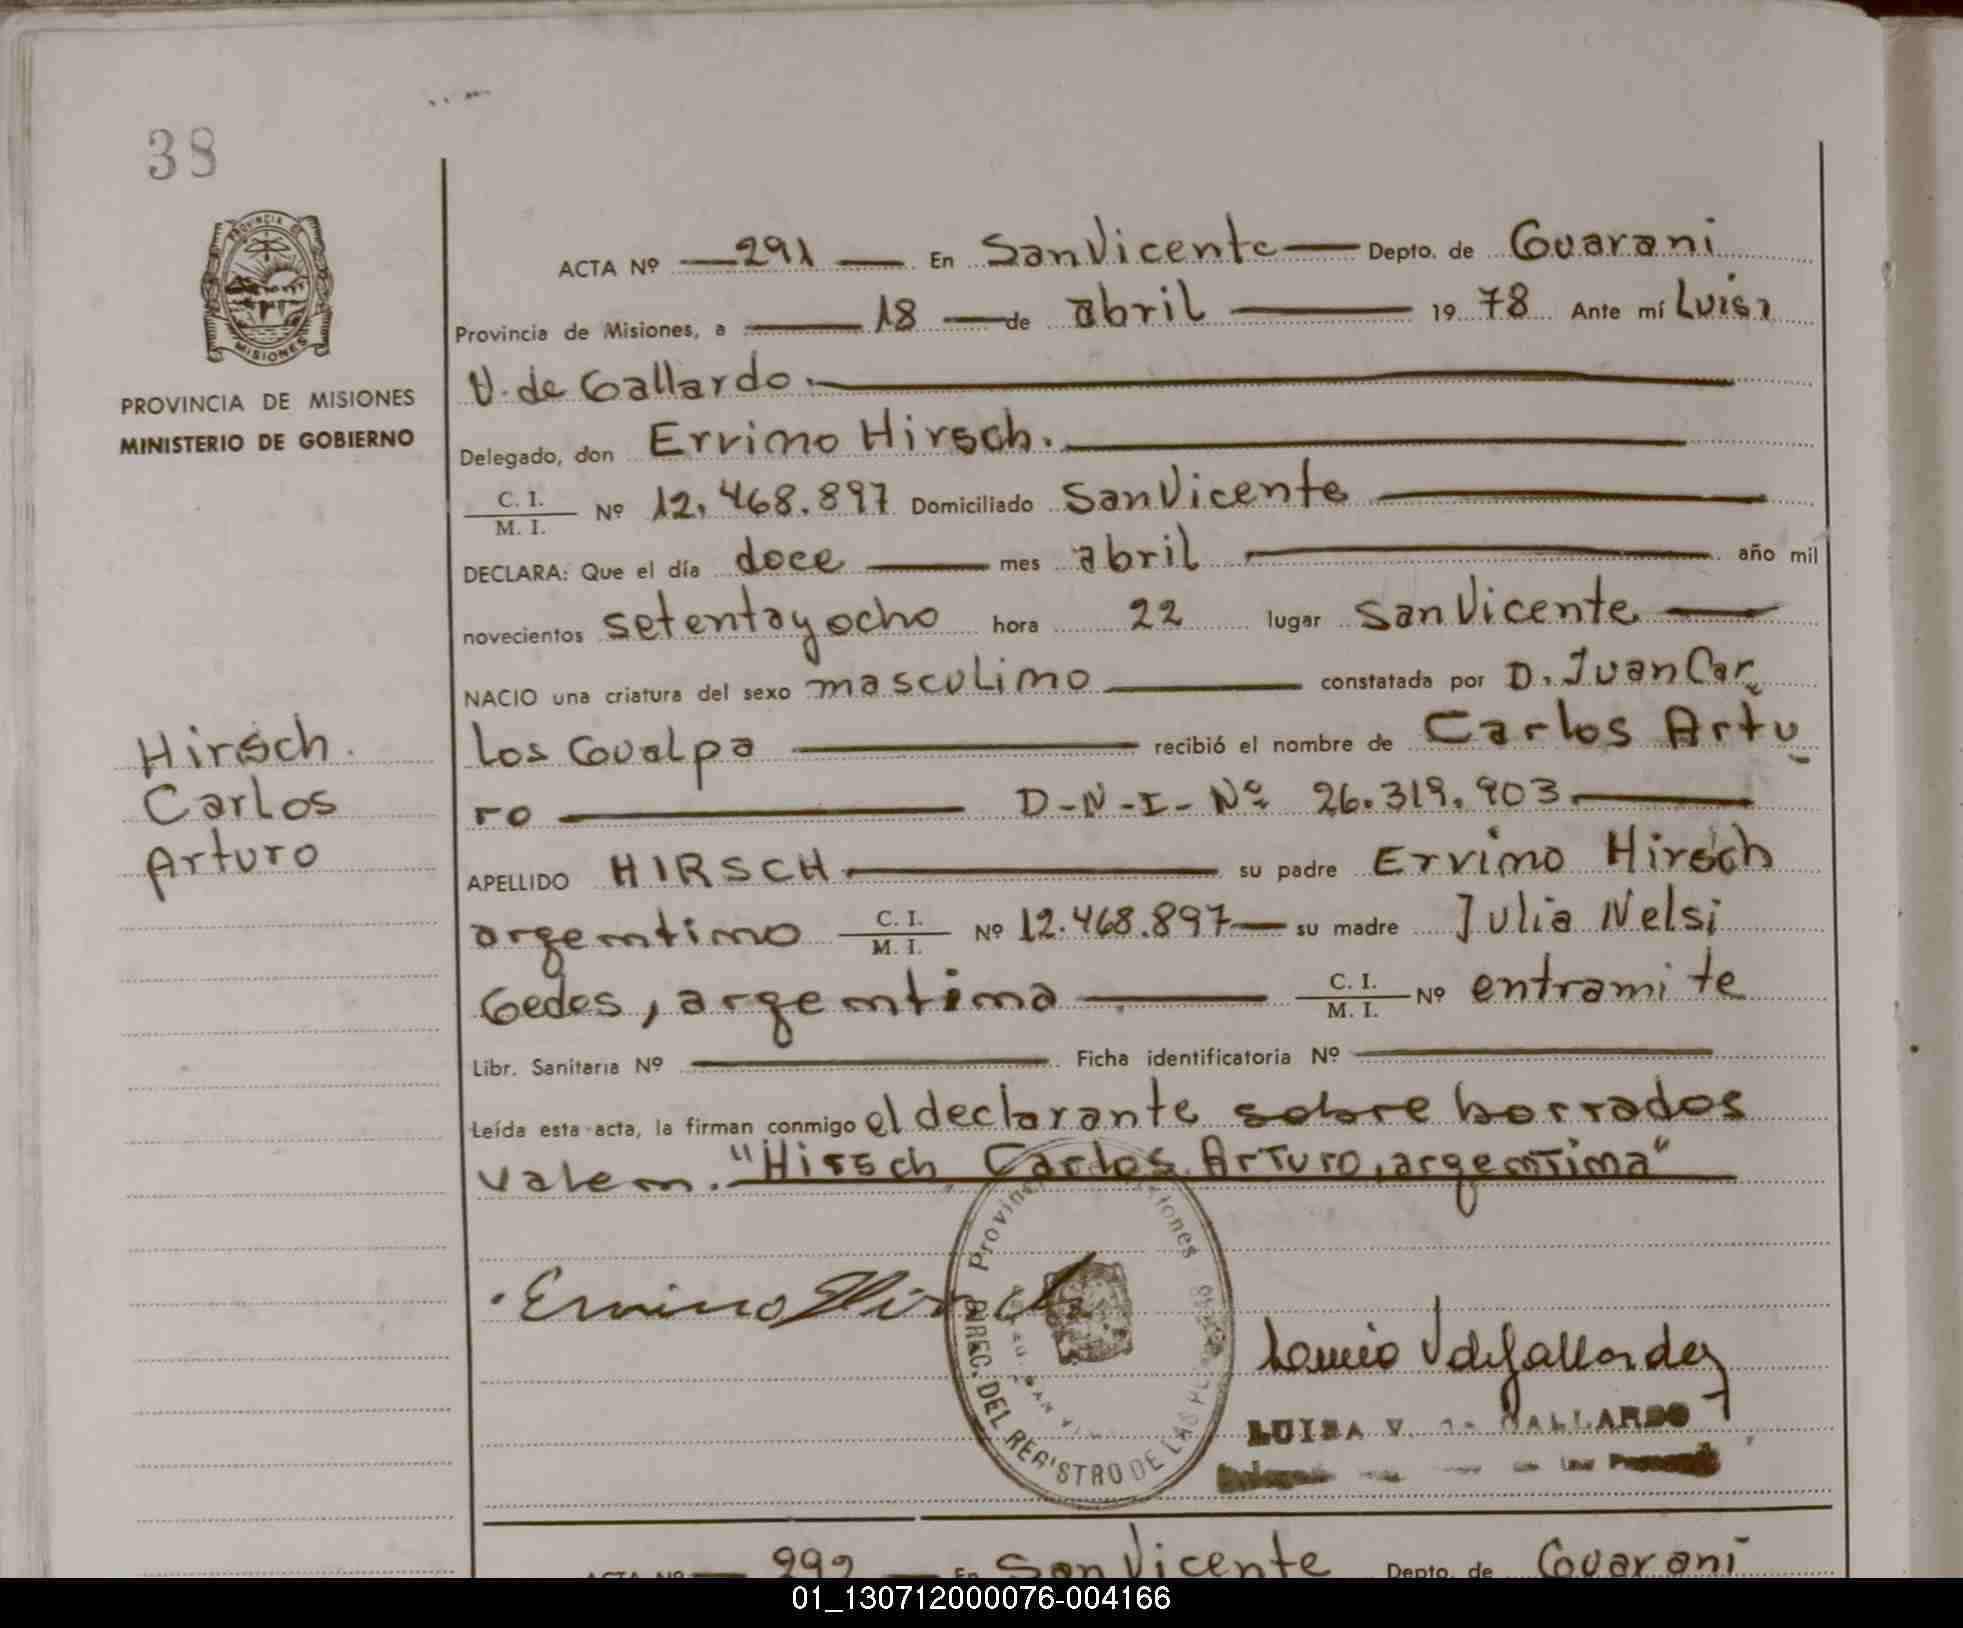 38
PROVINCIA DE
MISIONES
PROVINCIA DE MISIONES
MINISTERIO DE GOBIERNO
Hirsch.
Carlos
Arturo
ACTA Nº 291 En San Vicente Depto. de Guarani
Provincia de Misiones, a 18 de abril 1978 Ante mí Luisa
V. de Gallardo.
Delegado, don Ervino Hirsch.
C. I.
M. I. Nº 12.468.897 Domiciliado San Vicente
DECLARA: Que el día doce mes abril año mil
novecientos setenta y ocho hora 22 lugar San Vicente
NACIO una criatura del sexo masculino constatada por D. Juan Car
los Goualpa recibió el nombre de Carlos Artu
ro D-N-I-Nº 26.319.903
APELLIDO HIRSCH su padre Ervino Hirsch
argentino C. I. M. I. Nº 12.468.897 su madre Julia Nelsi
Gedes, argentina C. I. M. I. Nº entramite
Libr. Sanitaria Nº Ficha identificatoria Nº
Leída esta acta, la firman conmigo el declarante sobre borrados
valen. "Hirsch Carlos Arturo, argentina"
Ervino Hirsch
DIREC. DEL REGISTRO DE LAS
LUISA V. de GALLARDO
ACTA Nº 292 En San Vicente Depto. de Guarani
01_130712000076-004166